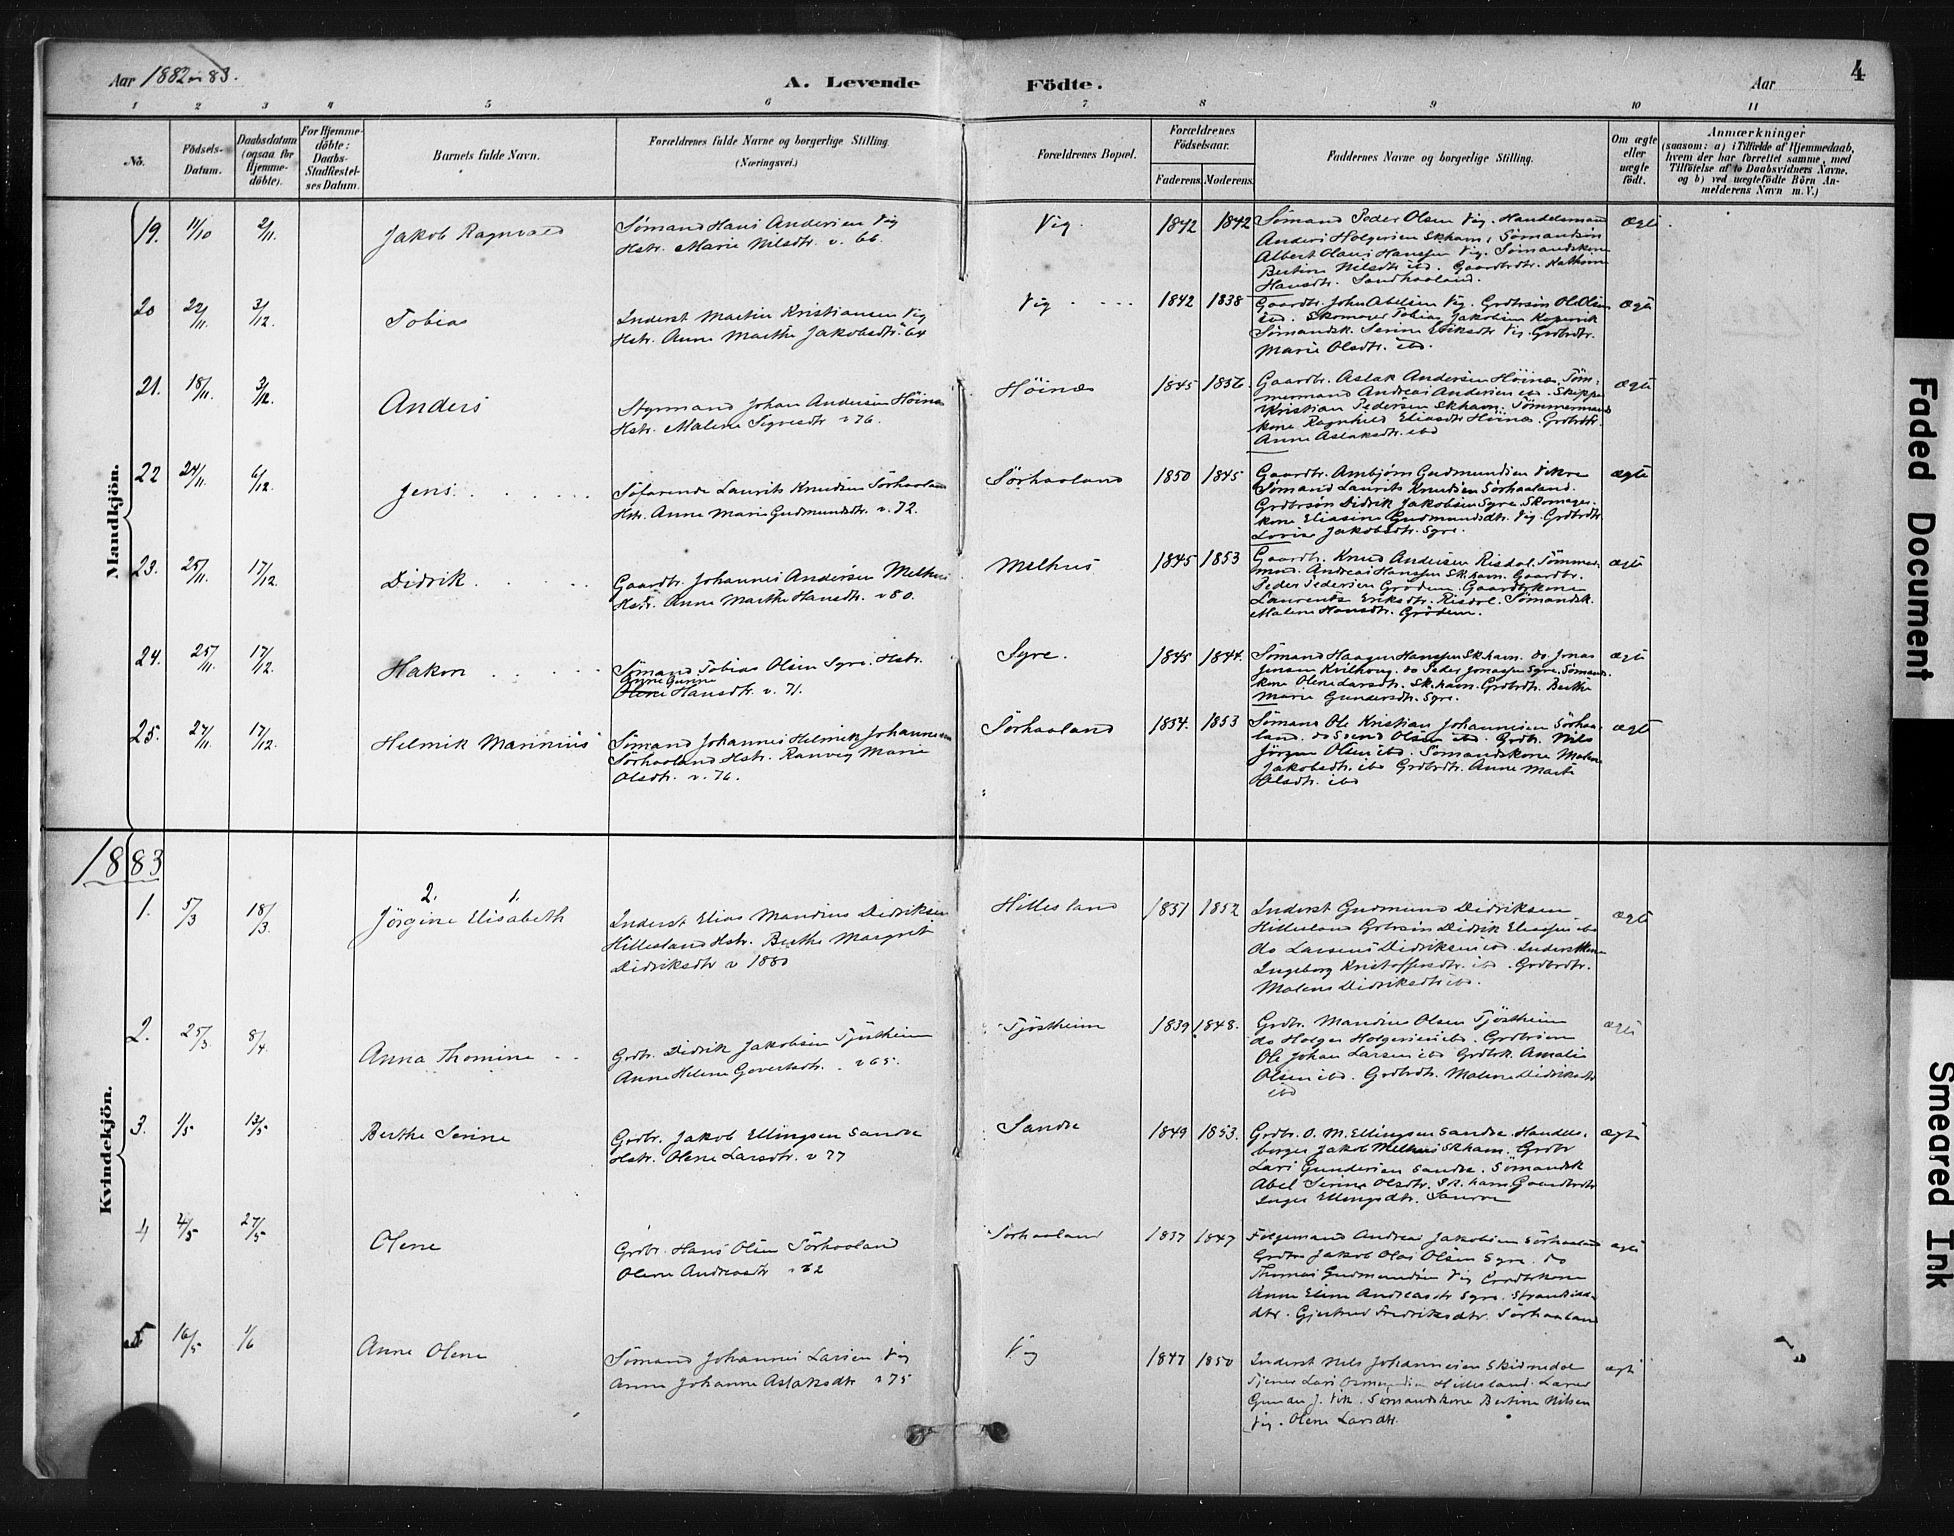 Aar 1882 83.
A. Levende Födte.
Aar
4
1 2 3 4 5 6 7 8 9 10 11
No.
Födsels-Datum.
Daabsdatum (ogsaa for Hjemme-döbte).
For Hjemme-döbte: Daabs-Stadfestel-ses Datum.
Barnets fulde Navn.
Forældrenes fulde Navne og borgerlige Stilling (Næringsvei.)
Forældrenes Bopæl.
Forældrenes Födselsaar.
Faderens. Moderens.
Faddernes Navne og borgerlige Stilling.
Om ægte eller uægte födt.
Anmærkninger
(saasom: a) i Tilfælde af Hjemmedaab,
hvem der har forrettet samme, med
Tilföielse af to Daabsvidners Navne,
og b) ved uægtefödte Börn An-
melderens Navn m. V.)
Mandkjön.
19. 11/10 2/11. Jakob Ragnvald
Sömand Hans Andersen Vig
Hstr. Marie Nilsdtr. v. 66.
Vig. 1842 1842
Sömand Peder Olsen Vig. Handelsmand
Anders Holgersen Skhavn, Sömandssön
Albert Olaus Hansen Vig. Sömandskone
Bertine Nilsdtr ibd. Gaardbrdtr.
Hansdtr. Sandhaaland.
Ægte.
20 22/11. 3/12. Tobias
Inderst Martin Kristiansen Vig
Hstr. Anne Marthe Jakobsdtr. 64
Vig 1842 1838
Gaardbr. John Abelsen Vig. Grdbrsön Ol. Olsen
ibd. Skomager Tobias Jakobsen Kopervik
Sömandsk. Serine Eriksdtr Vig. Grdbrdtr.
Marie Olsdtr. ibd.
Ægte
21. 18/11. 3/12. Anders
Styrmand Johan Andersen Höines
Hstr. Malene Sigvesdtr v 76.
Höinæs 1845 1856.
Gaardbr. Aslak Andersen Höinæs. Töm-
mermand Andreas Andersen ibd. Skipper
Kristian Pedersen Skhavn. Tömmermands
kone Ragnhild Eliasdtr Höinæs. Grdbrdtr.
Anne Aslaksdtr. ibd
ægte
22 24/11. 6/12. Jens.
Söfarende Laurits Knudsen Sörhaaland
Hstr. Anne Marie Gudmundsdtr. v. 72.
Sörhaaland 1850 1845
Gaardbr. Ambjörn Gudmundsen Vikre
Sömand Laurits Knudsen Sörhaaland.
Grdbrsön Didrik Jakobsen Syre. Skomager-
kone Eliasine Gudmundsdtr. Vig. Grdbrdtr.
Lovise Jakobsdtr. Syre.
ægte
23. 25/11. 17/12. Didrik
Gaardbr. Johannes Andersen Melhus
Hstr. Anne Marthe Hansdtr. v 80.
Melhus 1845 1853
Gaardbr. Knud Andersen Risdal. Tömmer-
mand. Andreas Hansen Skhavn. Gaardbr.
Peder Pedersen Grödem. Gaardbrkone
Laurentse Eriksdtr. Risdal. Sömandsk.
Malene Hansdtr. Grödem.
ægte
24. 25/11. 17/12. Hakon
Sömand Tobias Olsen Syre. Hstr.
Anne Gurine
Olene Hansdtr. v. 71.
Syre. 1845 1844.
Sömand Haagen Hansen Skhavn. do Jonas
Jensen Kvilhaug. do Peder Jonassen Syre. Sömands-
kone Olene Larsdtr. Skhavn. Grdbrdtr. Berthe
Marie Gundersdtr. Syre.
ægte
25. 27/11. 17/12. Helmik Marinius
Sömand Johannes Helmik Johannesen
Sörhaaland Hstr. Ranveig Marie
Olsdtr. v. 76.
Sörhaaland 1854. 1853
Sömand Ole Kristian Johannesen Sörhaa-
land. do Svend Olsen ibd. Grdbr. Nils
Jörgen Olsen ibd. Sömandskone Malene
Jakobsdtr. ibd Grdbrdtr. Anne Marte
Olsdtr. ibd
ægte
1883
Kvindekjön.
1. 5/3 18/3.
2. 1.
Jörgine Elisabeth
Inderst Elias Mandius Didriksen
Hillesland Hstr. Berthe Margrit
Didriksdtr v 1880
Hillesland 1851 1852
Inderst Gudmund Didriksen
Hillesland Grbrsön Didrik Eliassen ibd
do Larsens Didriksen ibd. Inderstkone
Ingeborg Kristoffersdtr. ibd. Grdbrdtr.
Malene Didriksdtr ibd.
ægte
2. 25/3 8/4. Anna Thomine
Grdbr. Didrik Jakobsen Tjöstheim
Anne Helene Govertsdtr. v 65.
Tjöstheim 1839 1848.
Grdbr. Mandius Olsen Tjöstheim
do Holger Holgersen ibd. Grdbrsön
Ole Johan Larsen ibd Grdbrk. Amalie
Olsen ibd. Grdbrdtr. Malene Didriksdtr
ibd
ægte
3. 1/5 13/5 Berthe Serine
Grdbr. Jakob Ellingsen Sandve
Hstr. Olene Larsdtr. v 77
Sandve 1849 1853.
Grdbr. O. M. Ellingsen Sandve. Handels-
borger Jakob Melhus Skhavn. Grdbr
Lars Gundersen Sandve. Sömandsk
Abel Serine Olsdtr. Skhavn Gaardbrdtr
Inger Ellingsdtr. Sandve
ægte
4 4/5 27/5 Olene
Grdbr. Hans Olsen Sörhaaland
Olene Andreasdtr v 62
Sörhaaland 1837 1847
Föigemand Andreas Jakobsen Sörhaaland
Grdbr Jakob Olai Olsen Syre. do
Thomas Gudmundsen Vig Grdbrkone
Anne Eline Andreasdtr Syre. Strandsidde-
dtr. Gjertrud Fredriksdtr. Sörhaaland
ægte
5 16/5 1/6 Anne Olene
Sömand Johannes Larsen Vig
Anne Johanne Aslaksdtr v 75
Vig 1847 1850
Inderst Nils Johannesen Skudnedal
Tjener Lars Hillesland.
Gunder J. Vik. Sömandskone Bertine Nilsen
Vig. Olene Larsdtr.
ægte
Faded Document
Smeared Ink